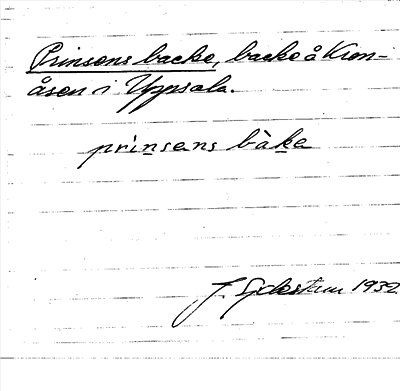 Prinsens backe, backe å Kron-
åsen i Uppsala.
prinsens bàke
J. 1932